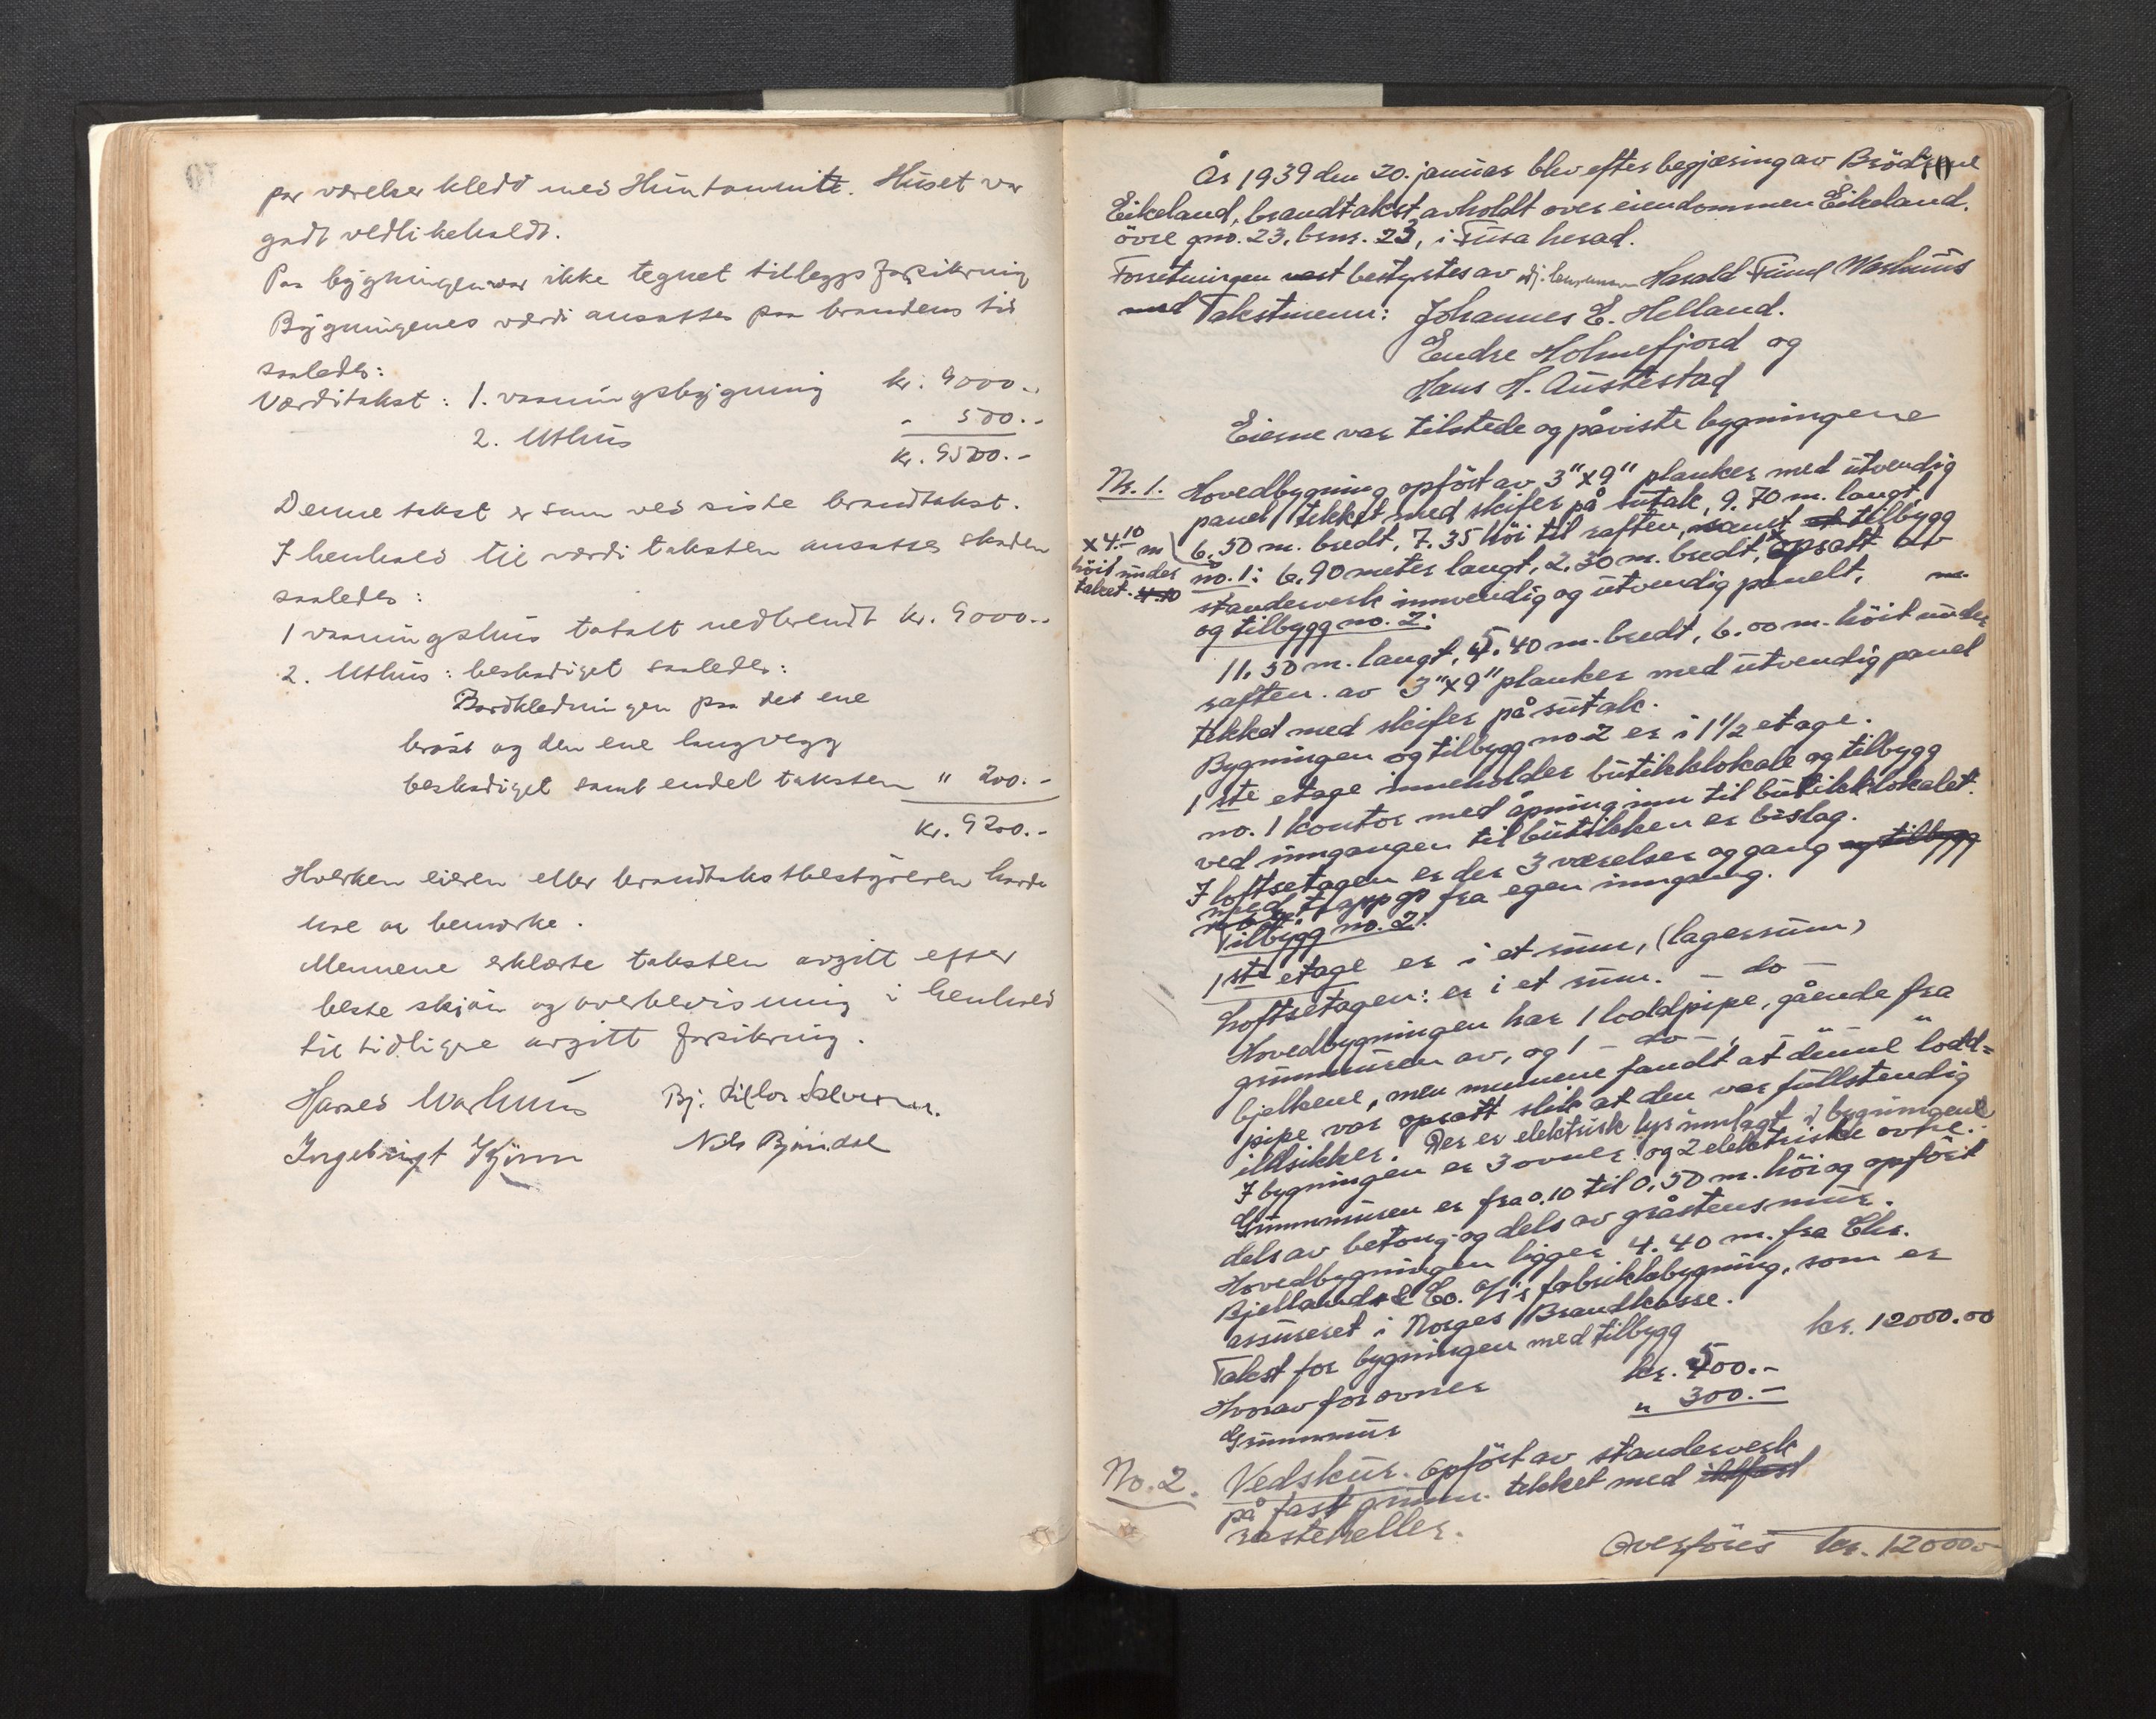 par værelser kledt med Huntonnite. Huset var
godt vedlikeholdt.
Paa bygningen var ikke tegnet tilleggsforsikring
Bygningenes værdi ansattes paa brandens tid
saaledes:
Værditakst: 1. vaaningsbygning kr. 9000.-
2. Uthus - 500.-
kr. 9500.-
Denne takst er som ved siste brandtakst.
I henhold til værditaksten ansattes skaden
saaledes:
1 vaaningshus totalt nedbrendt kr. 9000.-
2. Uthus: beskadiget saaledes:
Bordkledningen paa det ene
brøst og den ene langvegg
beskadiget samt endel taksten " 200.-
kr. 9200.-
Hverken eieren eller brandtakstbestyreren hadde
noe at bemerke.
Mennene erklærte taksten avgitt efter
beste skjøn og overbevisning i henhold
til tidligere avgitt forsikring.
Harald Warhuus Bj.
Ingebrigt Nils Bjørndal
10
År 1939 den 20. januar blev efter begjæring av Brödrene
Eikeland, brandtakst avholdt over eiendommen Eikeland.
övre gno. 23, brnr. 23, i Fusa herad.
Forretningen bestyrtes av Harald Warhuus
med Takstmenn: Johannes E. Helland.
Endre Holmefjord og
Hans H. Austestad
Eierne var tilstede og påviste bygningene
Nr. 1. Hovedbygning opfört av 3"x9" planker med utvendig
panel tekket med skifer på sutak, 9.70 m. langt,
6.50 m. bredt, 7.35 höi til raften, samt et tilbygg
x 4.10 m
höit under
taket. 4.10
no. 1: 6.90 meter langt, 2.30 m. bredt, opsatt av
standerverk innvendig og utvendig panelt,
og tilbygg no. 2:
11.50 m. langt, 5.40 m. bredt, 6.00 m. höit under
raften. av 3"x9" planker med utvendig panel
tekket med skifer på sutak.
Bygningen og tilbygg no 2 er i 1 1/2 etage.
1ste etage inneholder butikklokale og tilbygg
no. 1 kontor med åpning inn til butikklokalet.
ved inngangen til butikken er bislag.
I loftsetagen er der 3 værelser og gang og tilbygg
med trapp op fra egen inngang.
Tilbygg no. 2:
1ste etage er i et rum, (lagerrum)
Loftsetagen: er i et rum. - do -
Hovedbygningen har 1 loddpipe, gående fra
grunnmuren av, og 1 - do -, - " - "
bjelkene, men mennene fandt at denne lodd=
pipe var opsatt slik at den var fullstendig
ildsikker. Der er elektrisk lys innlagt i bygningene
I bygningen er 3 ovner og 2 elektriske ovne.
Grunnmuren er fra 0.10 til 0.50 m. höi og opfört
dels av betong og dels av gråstensmur.
Hovedbygningen ligger 4.40 m. fra Chr.
Bjelland & Co. A/s fabrikkbygning, som er
assureret i Norges Brandkasse.
Takst for bygningen med tilbygg kr. 12000.00
Hvorav for ovner kr. 500.-
Grunnmur " 300.-
No. 2. Vedskur. Opfört av standerverk
på fast grunn. tekket med
rasteheller.
Overföres kr. 12000.-